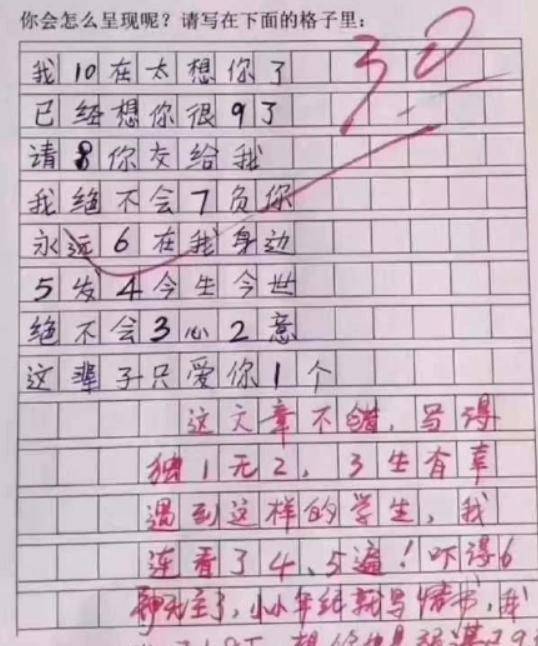 你会怎么呈现呢？请写在下面的格子里：
30
我10在太想你了
已经想你很9了
请8你交给我
我绝不会7负你
永远6在我身边
5发4今生今世
绝不会3心2意
这辈子只爱你1个
这文章不错，写得
独1无2，3生有幸
遇到这样的学生，我
连看了4、5遍！吓得6
神无主了，小小年纪就写情书，我